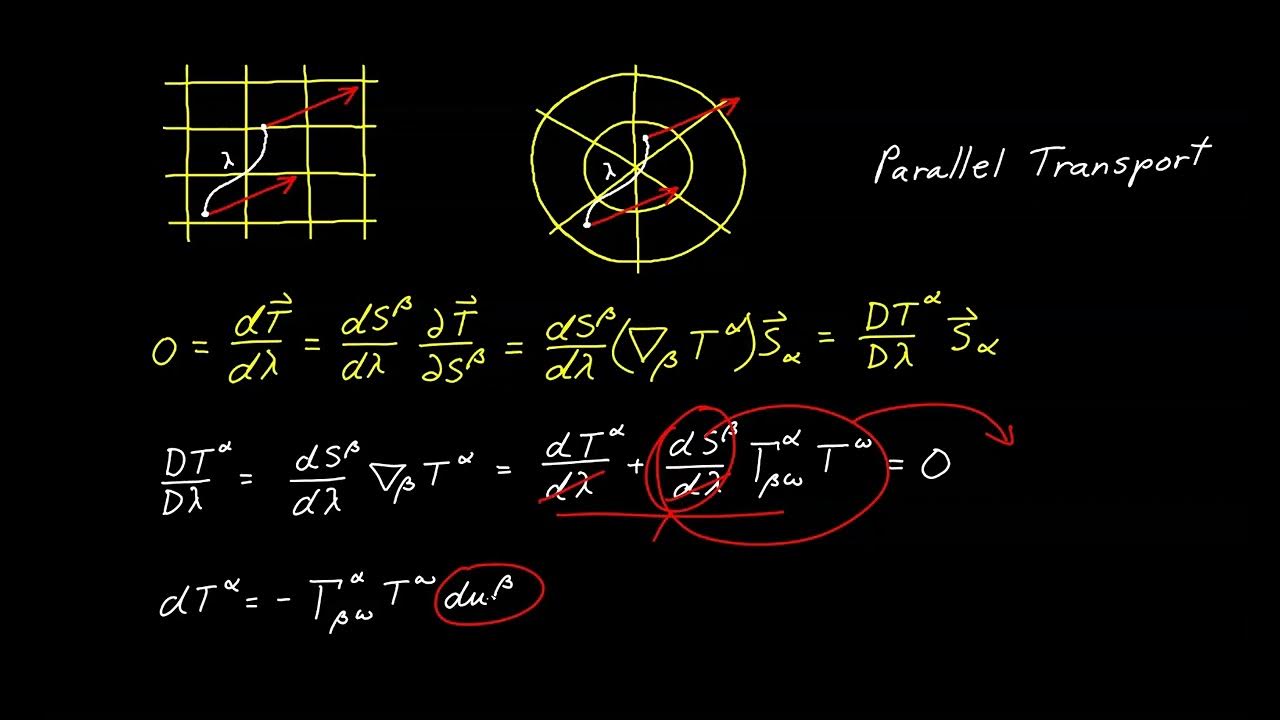 λ
λ
Parallel Transport
0 = dT⃗/dλ = dS^β/dλ ∂T⃗/∂S^β = dS^β/dλ (∇_β T^α) S⃗_α = DT^α/Dλ S⃗_α
DT^α/Dλ = dS^β/dλ ∇_β T^α = dT^α/dλ + dS^β/dλ Γ^α_βω T^ω = 0
dT^α = - Γ^α_βω T^ω du^β